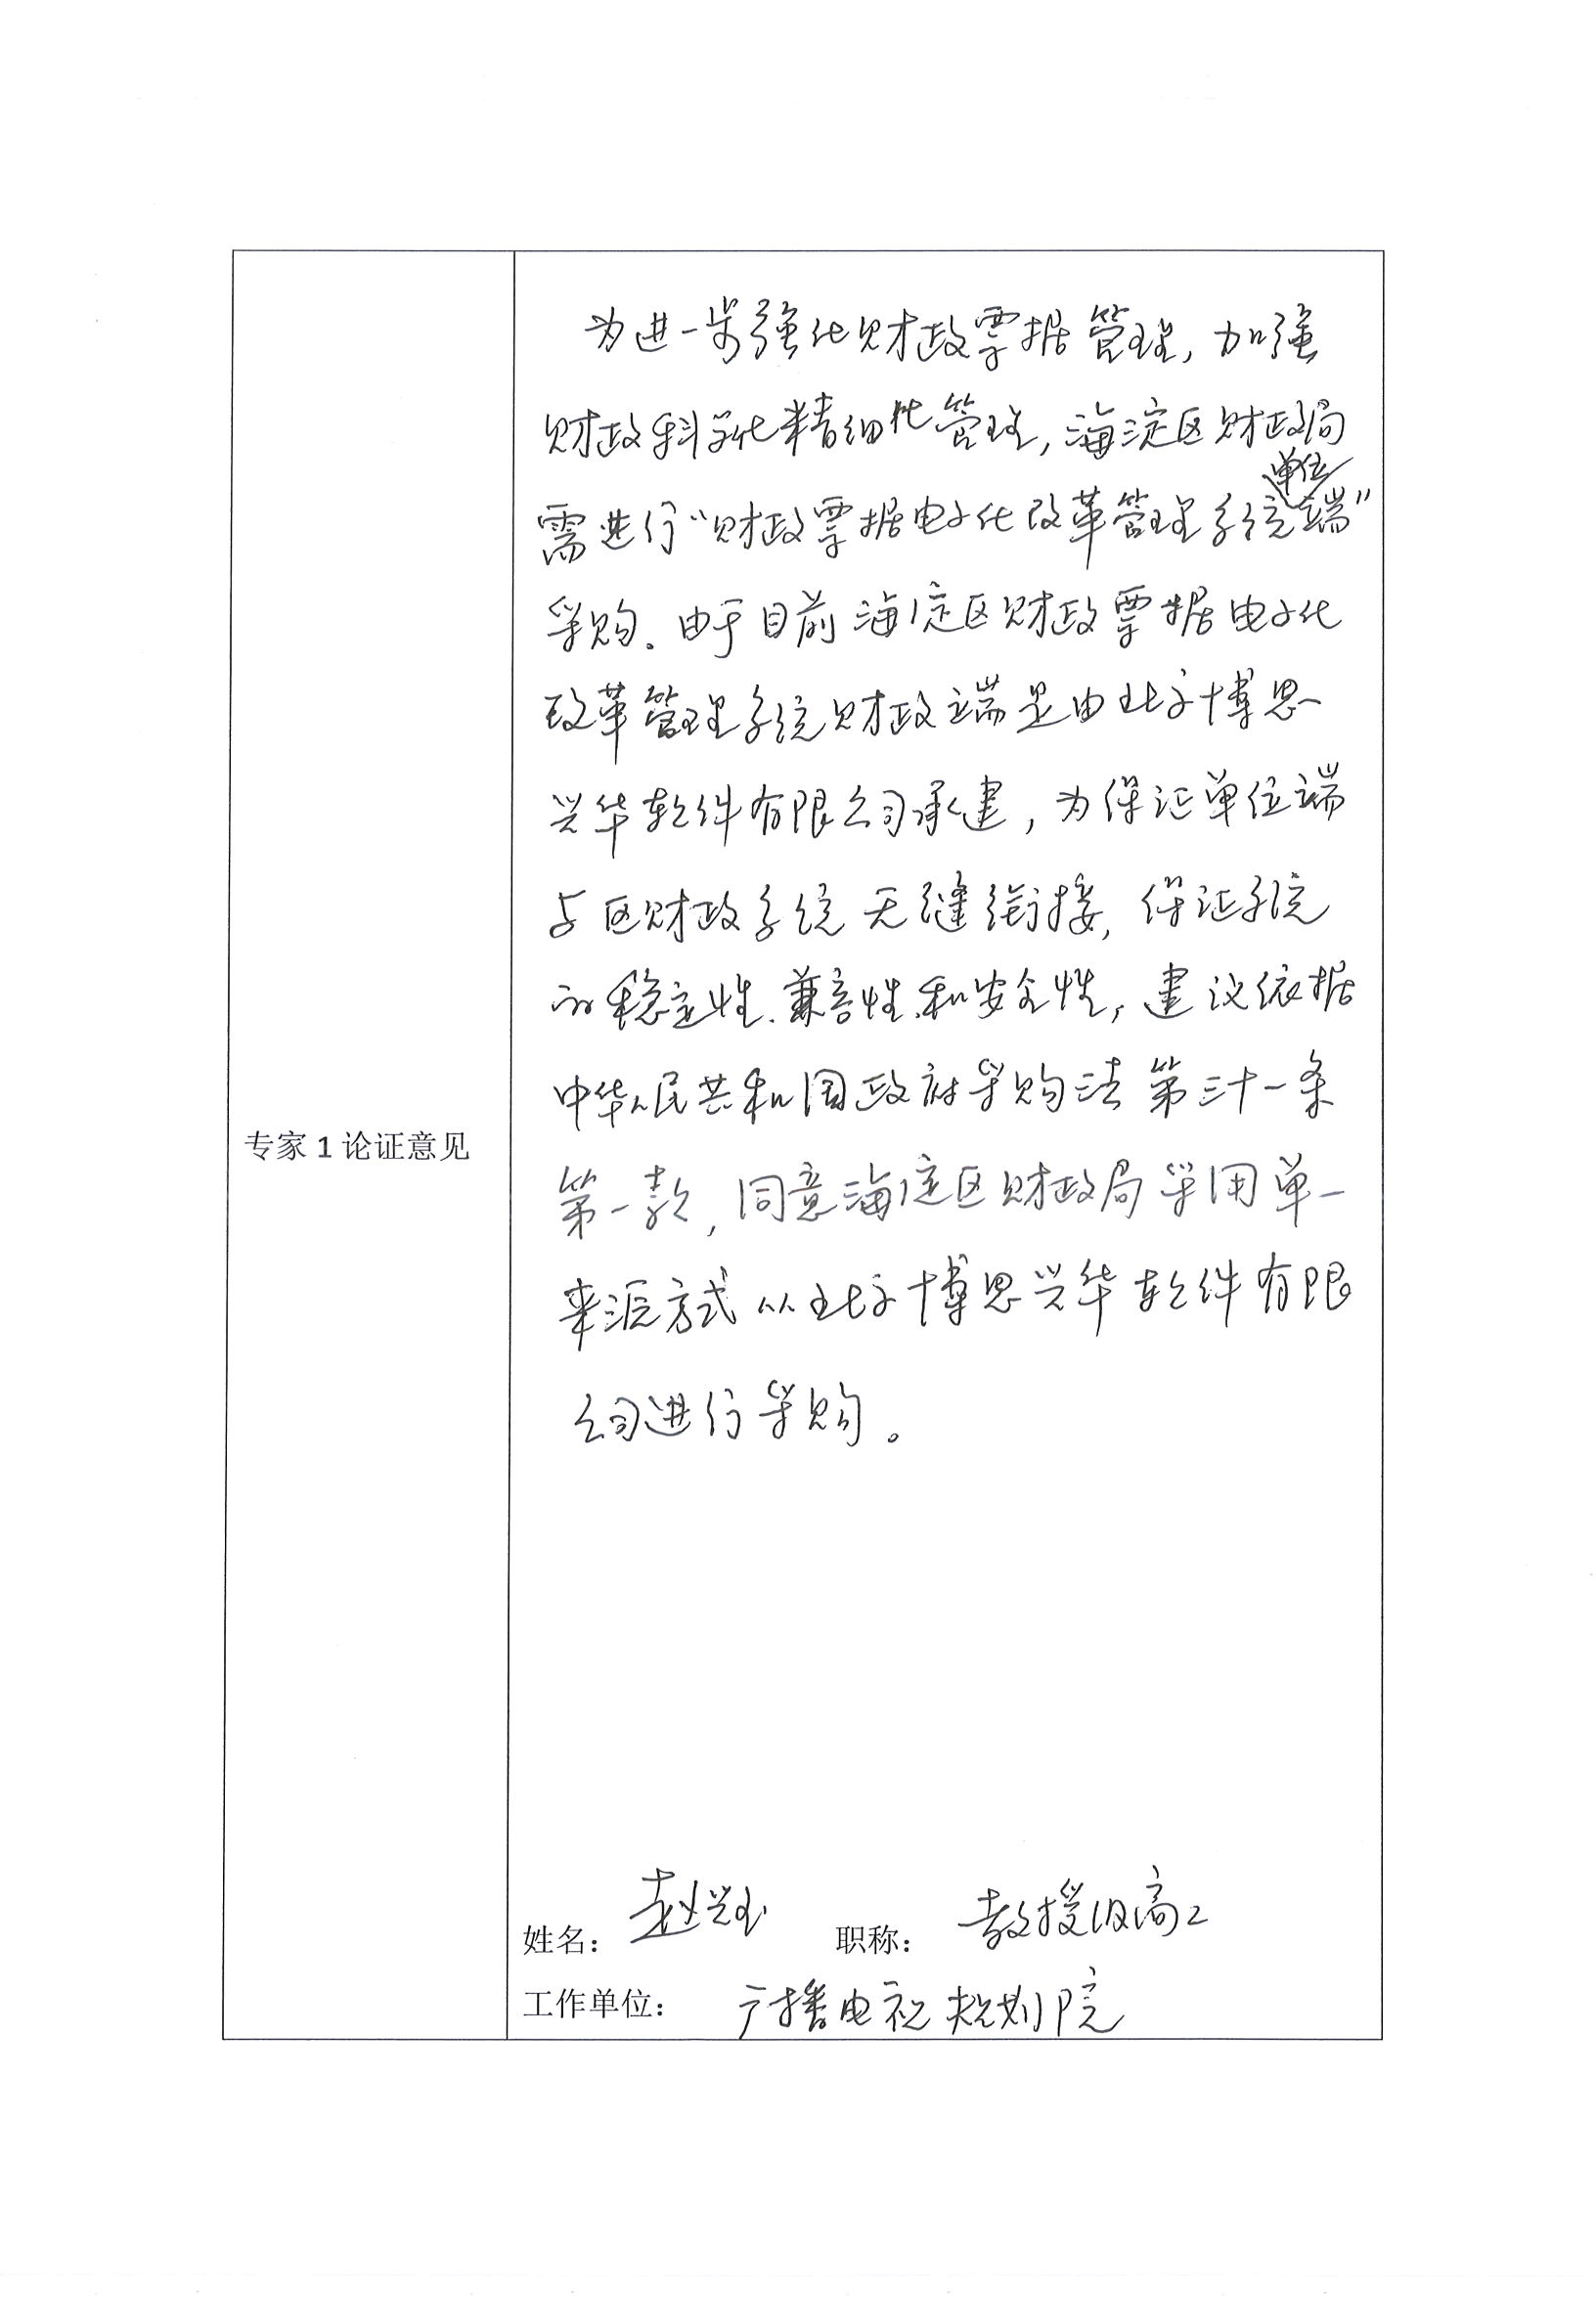 为进一步强化财政票据管理, 加强
财政科学化精细化管理, 海淀区财政局
需进行“财政票据电子化改革管理系统单位端”
采购. 由于目前海淀区财政票据电子化
改革管理系统财政端是由北京博思
兴华软件有限公司承建, 为保证单位端
与区财政系统无缝衔接, 保证系统
的稳定性、兼容性和安全性, 建议依据
中华人民共和国政府采购法第三十一条
专家 1 论证意见
第一款, 同意海淀区财政局采用单一
来源方式从北京博思兴华软件有限
公司进行采购。
姓名： 赵兴玉 职称： 教授级高工
工作单位： 广播电视规划院